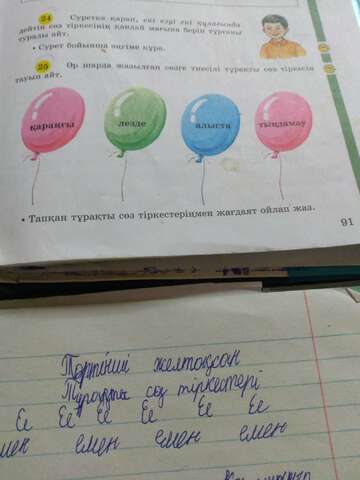 24 Суретке қарап, екі езуі екі құлағында
дейтін сөз тіркесінің қандай мағына беріп тұрғаны
туралы айт.
• Сурет бойынша әңгіме құра.
25 Әр шарда жазылған сөзге тиесілі тұрақты сөз тіркесін
тауып айт.
қараңғы лезде алыста тыңдамау
• Тапқан тұрақты сөз тіркестеріңмен жағдаят ойлап жаз.
91
Төртінші желтоқсан
Тұрақты сөз тіркестері
Ее Ее Ее Ее Ее Ее
емен емен емен емен